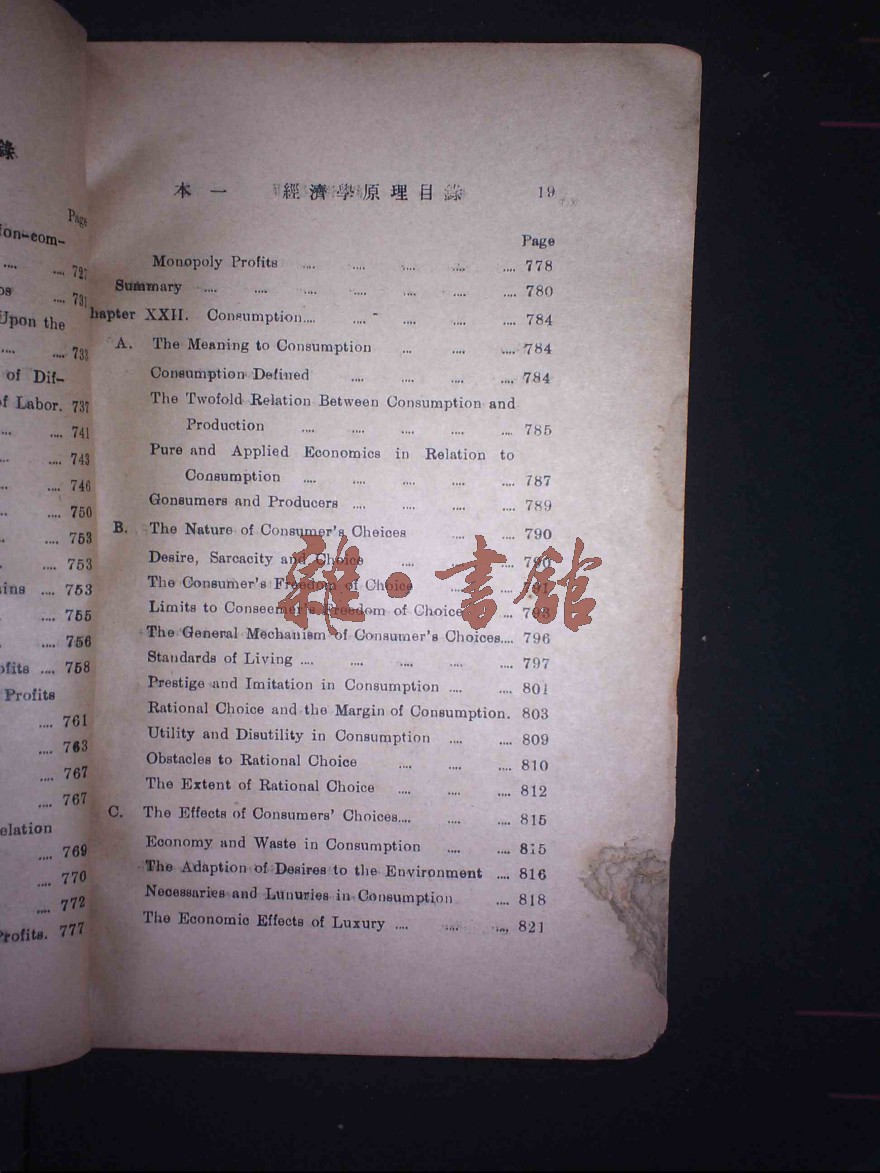 錄
Page
727
731
Upon the
733
of Dif-
of Labor. 737
741
743
746
750
753
753
753
755
756
758
Profits
761
763
767
767
769
770
772
777
本一 經濟學原理目錄 19
Page
Monopoly Profits .... .... .... .... .... 778
Summary .... .... .... .... .... .... 780
hapter XXII. Consumption.... .... .... .... .... 784
A. The Meaning to Consumption ... .... .... 784
Consumption Defined .... .... .... .... 784
The Twofold Relation Between Consumption and
Production .... .... .... .... .... 785
Pure and Applied Economics in Relation to
Consumption .... .... .... .... .... 787
Gonsumers and Producers .... .... .... .... 789
B. The Nature of Consumer's Choices .... .... 790
Desire, Sarcacity and Choice .... .... .... 790
The Consumer's Freedom of Choice .... .... 791
Limits to Conseemer's Freedom of Choice .... 793
The General Mechanism of Consumer's Choices.... 796
Standards of Living .... .... .... .... .... 797
Prestige and Imitation in Consumption .... .... 801
Rational Choice and the Margin of Consumption. 803
Utility and Disutility in Consumption .... .... 809
Obstacles to Rational Choice .... .... .... 810
The Extent of Rational Choice .... .... .... 812
C. The Effects of Consumers' Choices.... .... .... 815
Economy and Waste in Consumption .... .... 815
The Adaption of Desires to the Environment .... 816
Necessaries and Lunuries in Consumption .... 818
The Economic Effects of Luxury .... .... .... 821
雜·書館